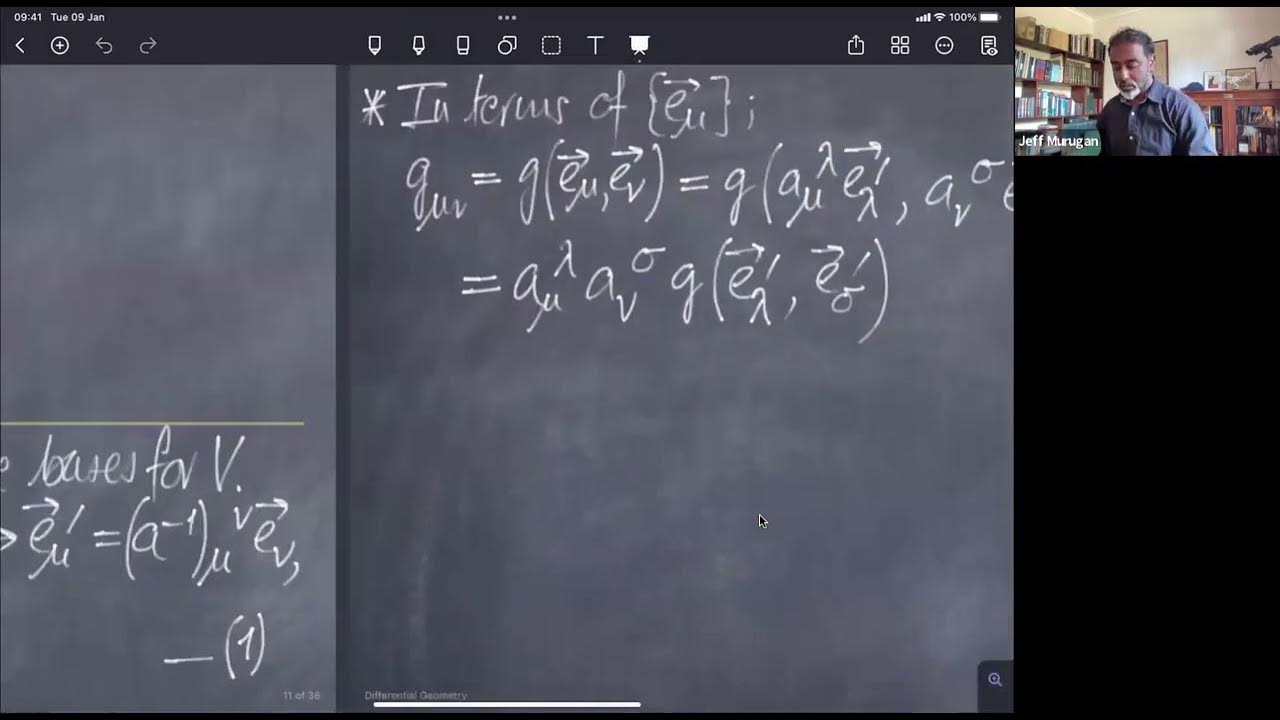 09:41 Tue 09 Jan
100%
T
Jeff Murugan
* In terms of {e⃗_μ};
g_μν = g(e⃗_μ, e⃗_ν) = g(a_μ^λ e⃗′_λ, a_ν^σ e
= a_μ^λ a_ν^σ g(e⃗′_λ, e⃗′_σ)
e bases for V.
> e⃗′_μ = (a⁻¹)_μ^ν e⃗_ν,
— (1)
11 of 38
Differential Geometry